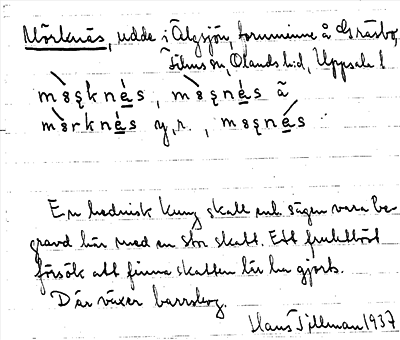 Mörknäs, udde i Älgsjön, fornminne å Gräsbo,
Films sn, Olands hd, Uppsala l
En hednisk kung skall enl. sägen vara be-
gravd här med en stor skatt. Ett fruktlöst
försök att finna skatten lär ha gjorts.
Där växer barrskog.
Hans Tillman 1937